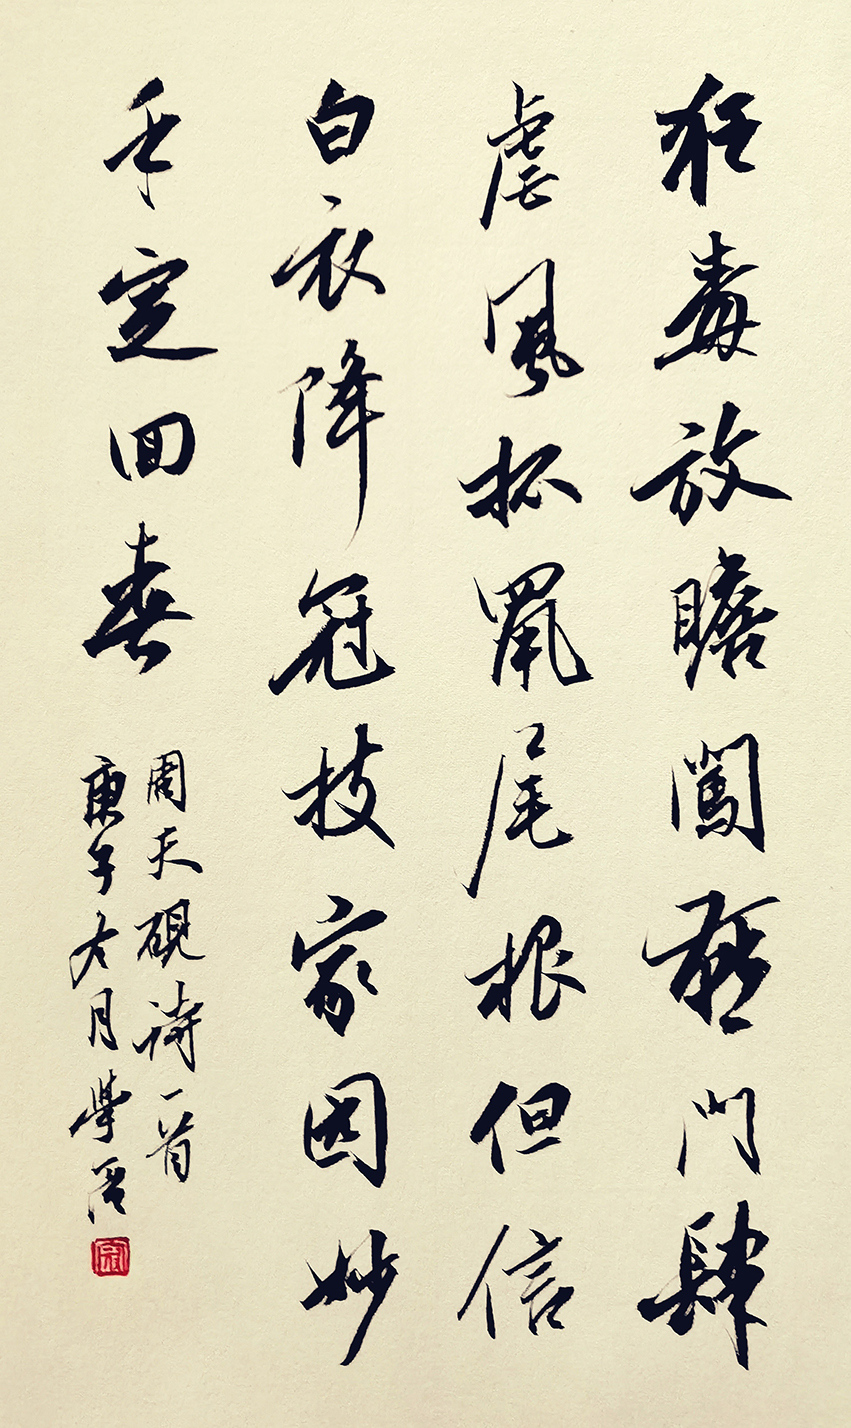 狂毒放瞻闖門肆
虐風抔鼠尾根但信
白衣降冠技家因妙
手定回春
周天硯詩一首
庚子六月學